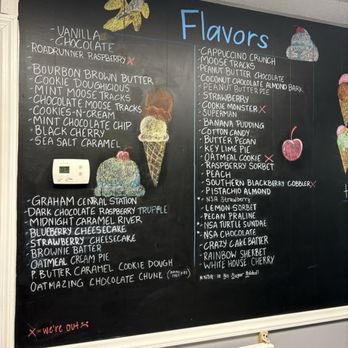 Flavors
- VANILLA
- CHOCOLATE
- ROADRUNNER RASPBERRY X
- BOURBON BROWN BUTTER
- COOKIE DOUGHICIOUS
- MINT MOOSE TRACKS
- CHOCOLATE MOOSE TRACKS
- COOKIES-N-CREAM
- MINT CHOCOLATE CHIP
- BLACK CHERRY
- SEA SALT CARAMEL
- GRAHAM CENTRAL STATION
- DARK CHOCOLATE RASPBERRY TRUFFLE
- MIDNIGHT CARAMEL RIVER
- BLUEBERRY CHEESECAKE
- STRAWBERRY CHEESECAKE
- BROWNIE BATTER
- OATMEAL CREAM PIE
- P. BUTTER CARAMEL COOKIE DOUGH
- OATMAZING CHOCOLATE CHUNK
X = we're out
- CAPPUCCINO CRUNCH
- MOOSE TRACKS
- PEANUT BUTTER CHOCOLATE
- COCONUT CHOCOLATE ALMOND BARK
- PEANUT BUTTER PIE
- STRAWBERRY
- COOKIE MONSTER X
- SUPERMAN
- BANANA PUDDING
- COTTON CANDY
- BUTTER PECAN
- KEY LIME PIE
- OATMEAL COOKIE X
- RASPBERRY SORBET
- PEACH
- SOUTHERN BLACKBERRY COBBLER X
- PISTACHIO ALMOND
* NSA Strawberry
- LEMON SORBET
- PECAN PRALINE
* NSA TURTLE SUNDAE
* NSA CHOCOLATE
- CRAZY CAKE BATTER
- RAINBOW SHERBET
- WHITE HOUSE CHERRY
*NSA is No Sugar Added!